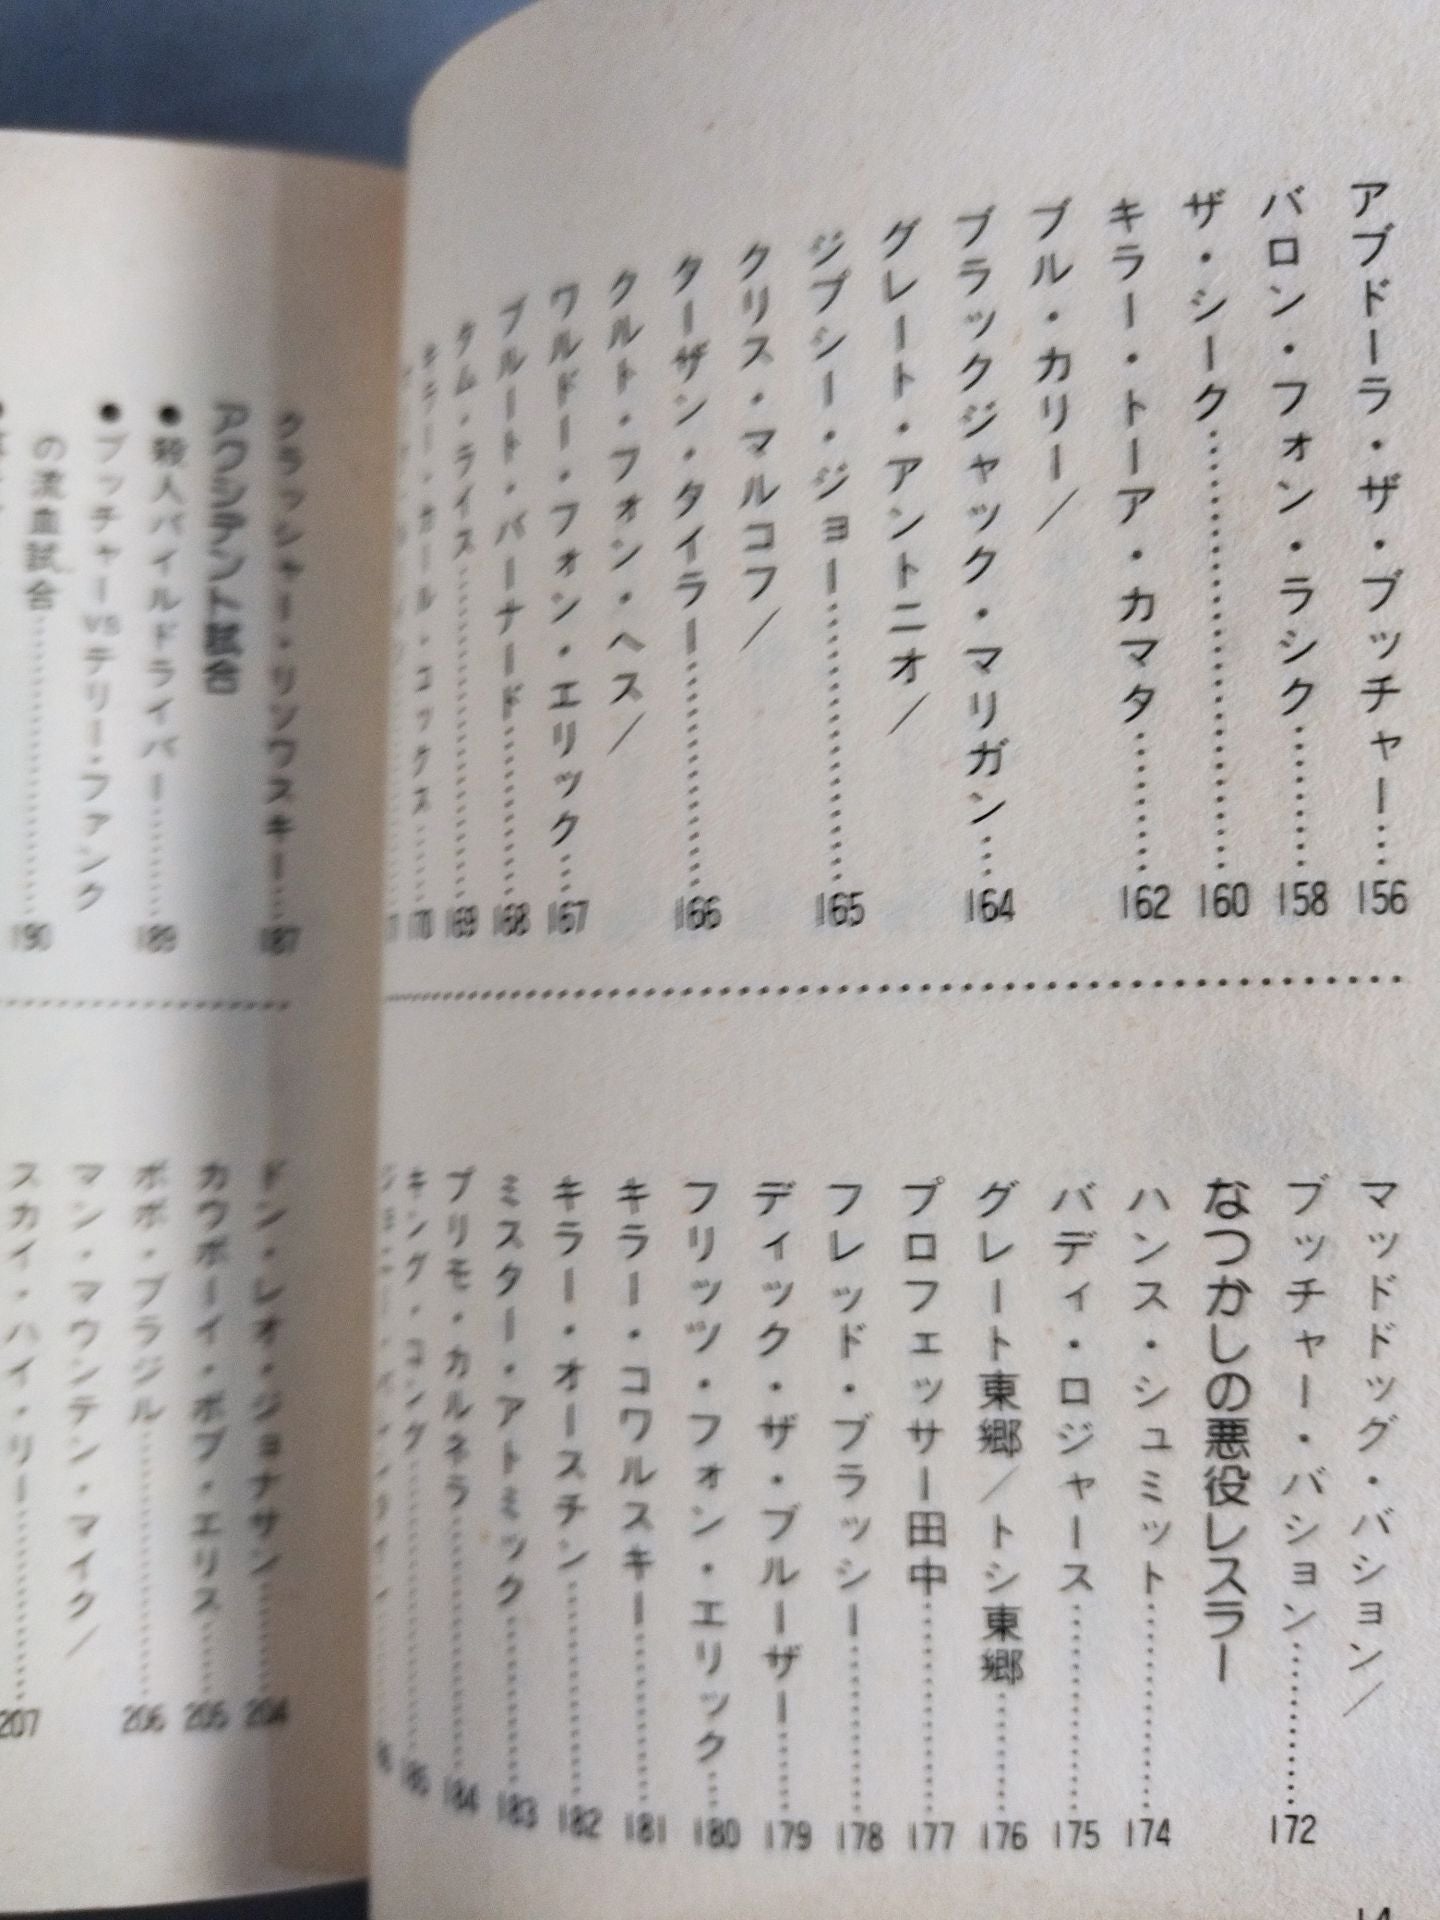 アブドーラ・ザ・ブッチャー……156
バロン・フォン・ラシク……158
ザ・シーク……160
キラー・トーア・カマタ……162
ブル・カリー/
ブラックジャック・マリガン……164
グレート・アントニオ/
ジプシー・ジョー……165
クリス・マルコフ/
ターザン・タイラー……166
クルト・フォン・ヘス/
ワルドー・フォン・エリック……167
ブルート・バーナード……168
タム・ライス……169
キラー・カール・コックス……170
マッドドッグ・バション/
ブッチャー・バション……172
なつかしの悪役レスラー
ハンス・シュミット……174
バディ・ロジャース……175
グレート東郷/トシ東郷……176
プロフェッサー田中……177
フレッド・ブラッシー……178
ディック・ザ・ブルーザー……179
フリッツ・フォン・エリック……180
キラー・コワルスキー……181
キラー・オースチン……182
ミスター・アトミック……183
プリモ・カルネラ……184
キング・コング……185
14
クラッシャー・リソワスキー……187
アクシデント試合
●殺人パイルドライバー……189
●ブッチャーVSテリー・ファンク
の流血試合……190
ドン・レオ・ジョナサン……204
カウボーイ・ボブ・エリス……205
ボボ・ブラジル……206
マン・マウンテン・マイク/
スカイ・ハイ・リー……207